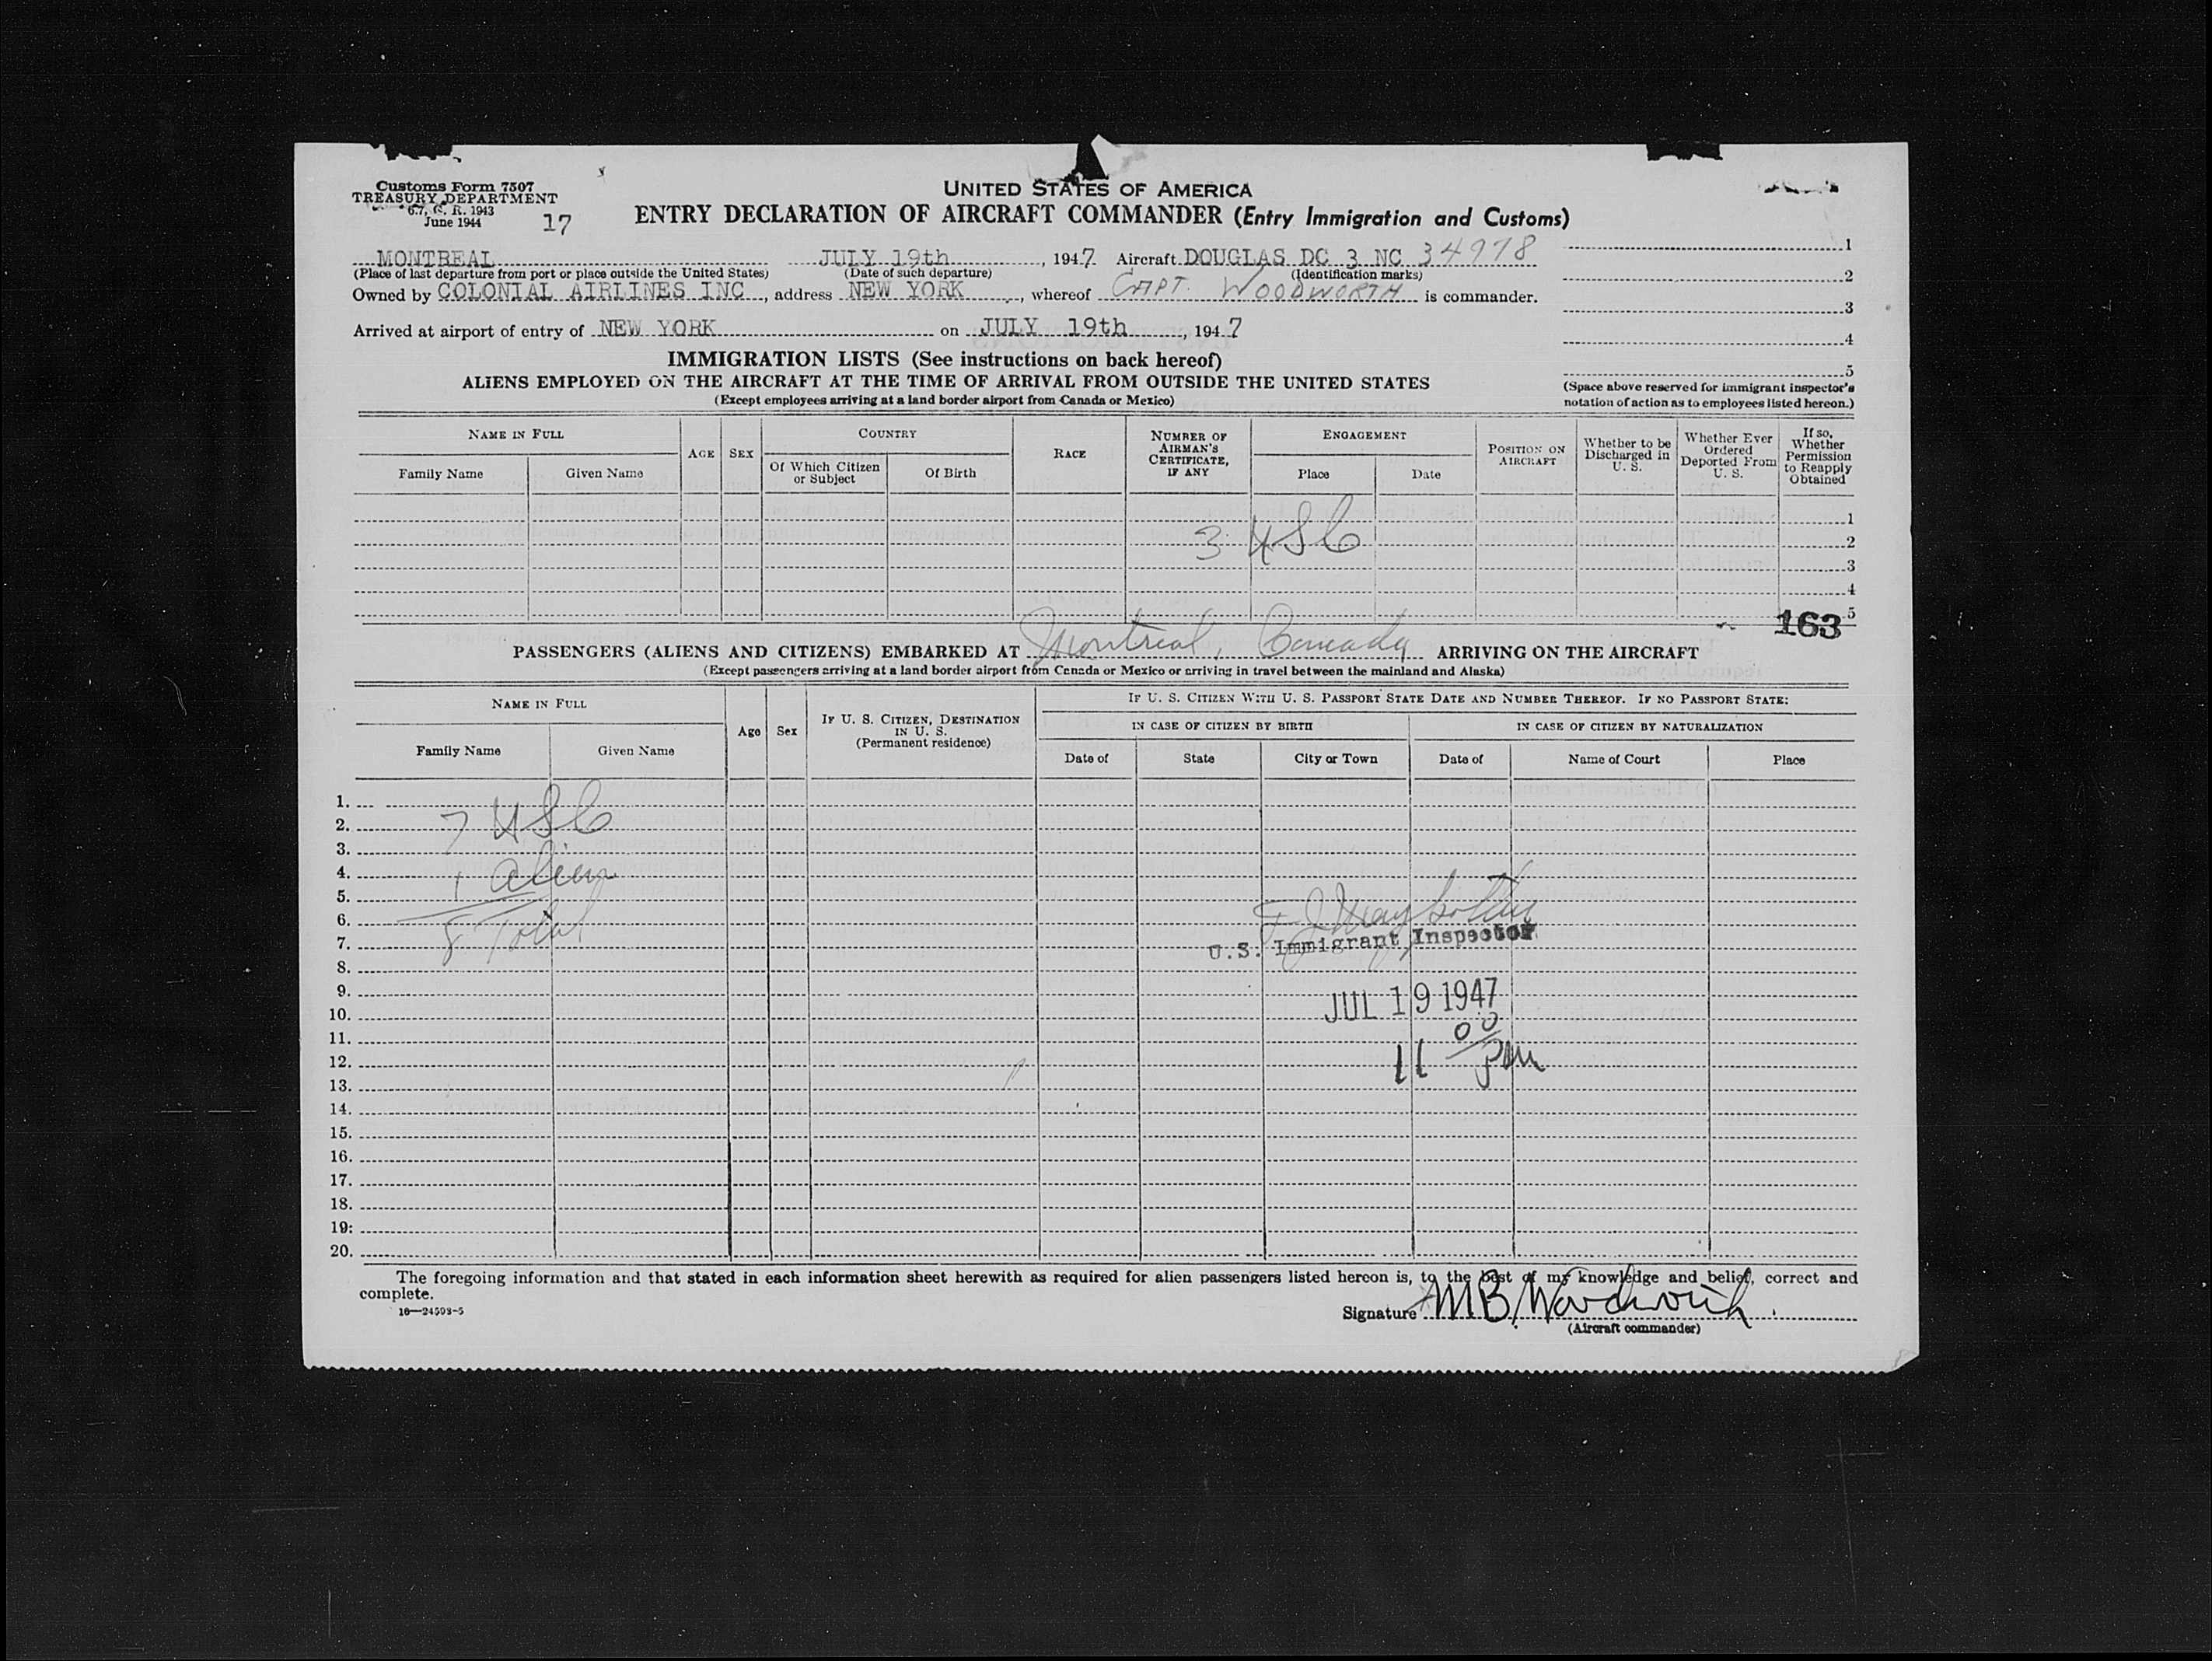 Customs Form 7507
TREASURY DEPARTMENT
6.7, C. R. 1943
June 1944
17
UNITED STATES OF AMERICA
ENTRY DECLARATION OF AIRCRAFT COMMANDER (Entry Immigration and Customs)
MONTREAL JULY 19th, 1947 Aircraft DOUGLAS DC 3 NC 34978
(Place of last departure from port or place outside the United States) (Date of such departure) (Identification marks)
Owned by COLONIAL AIRLINES INC, address NEW YORK, whereof CAPT. WOODWORTH is commander.
Arrived at airport of entry of NEW YORK on JULY 19th, 1947
1
2
3
4
5
(Space above reserved for immigrant inspector's notation of action as to employees listed hereon.)
IMMIGRATION LISTS (See instructions on back hereof)
ALIENS EMPLOYED ON THE AIRCRAFT AT THE TIME OF ARRIVAL FROM OUTSIDE THE UNITED STATES
(Except employees arriving at a land border airport from Canada or Mexico)
NAME IN FULL
Family Name Given Name
AGE SEX
COUNTRY
Of Which Citizen or Subject Of Birth
RACE
NUMBER OF AIRMAN'S CERTIFICATE, IF ANY
ENGAGEMENT
Place Date
POSITION ON AIRCRAFT
Whether to be Discharged in U. S.
Whether Ever Ordered Deported From U. S.
If so, Whether Permission to Reapply Obtained
1
3 USC 2
3
4
5
163
PASSENGERS (ALIENS AND CITIZENS) EMBARKED AT Montreal, Canada ARRIVING ON THE AIRCRAFT
(Except passengers arriving at a land border airport from Canada or Mexico or arriving in travel between the mainland and Alaska)
NAME IN FULL
Family Name Given Name
Age Sex
IF U. S. CITIZEN, DESTINATION IN U. S. (Permanent residence)
IF U. S. CITIZEN WITH U. S. PASSPORT STATE DATE AND NUMBER THEREOF. IF NO PASSPORT STATE:
IN CASE OF CITIZEN BY BIRTH IN CASE OF CITIZEN BY NATURALIZATION
Date of State City or Town Date of Name of Court Place
1.
2. 7 USC
3.
4. 1 alien
5.
6. 8 Total
7. U.S. Immigrant Inspector
8.
9.
10. JUL 19 1947
11.
12. 11 00 pm
13.
14.
15.
16.
17.
18.
19.
20.
The foregoing information and that stated in each information sheet herewith as required for alien passengers listed hereon is, to the best of my knowledge and belief, correct and
complete.
16—24593-5
Signature M B Woodworth
(Aircraft commander)